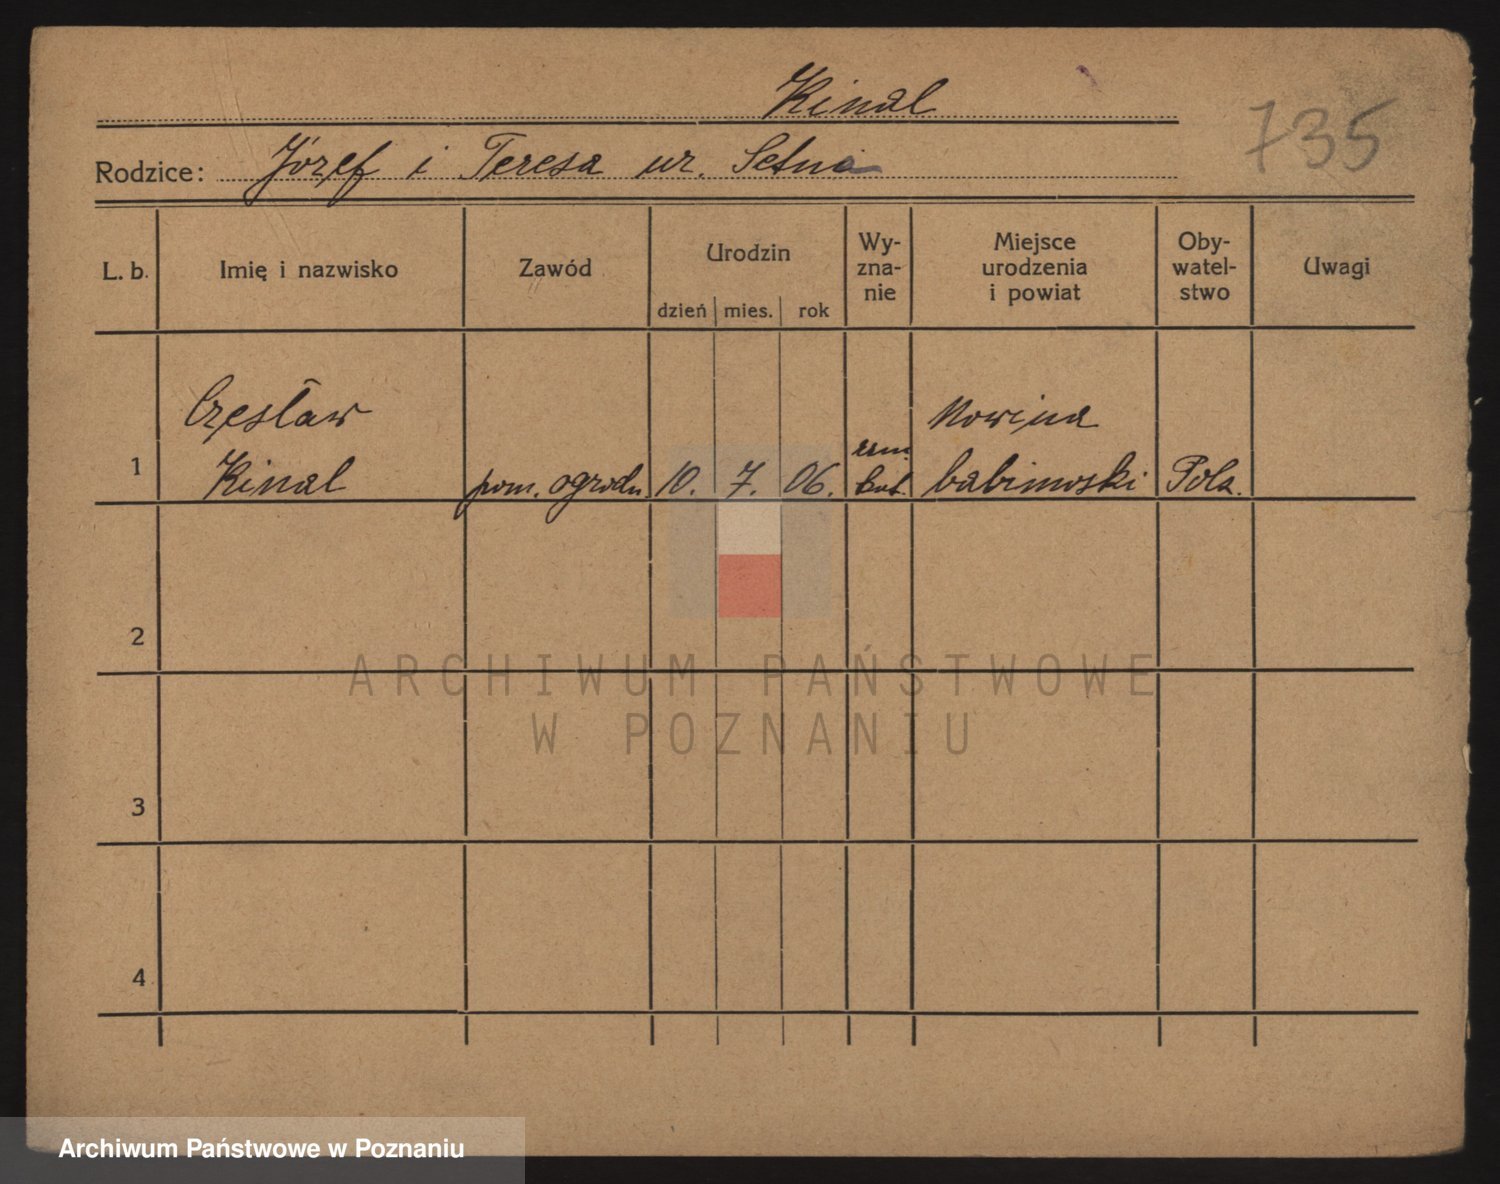 Kinal
735
Rodzice: Józef i Teresa ur. Setna
L. b.
Imię i nazwisko
Zawód
Urodzin
dzień mies. rok
Wy-
zna-
nie
Miejsce
urodzenia
i powiat
Oby-
watel-
stwo
Uwagi
Czesław
Nowina
rzm.
1 Kinal pom. ogrodn. 10. 7. 06. kat. babimoski Pola.
2
ARCHIWUM PAŃSTWOWE
W POZNANIU
3
4
Archiwum Państwowe w Poznaniu